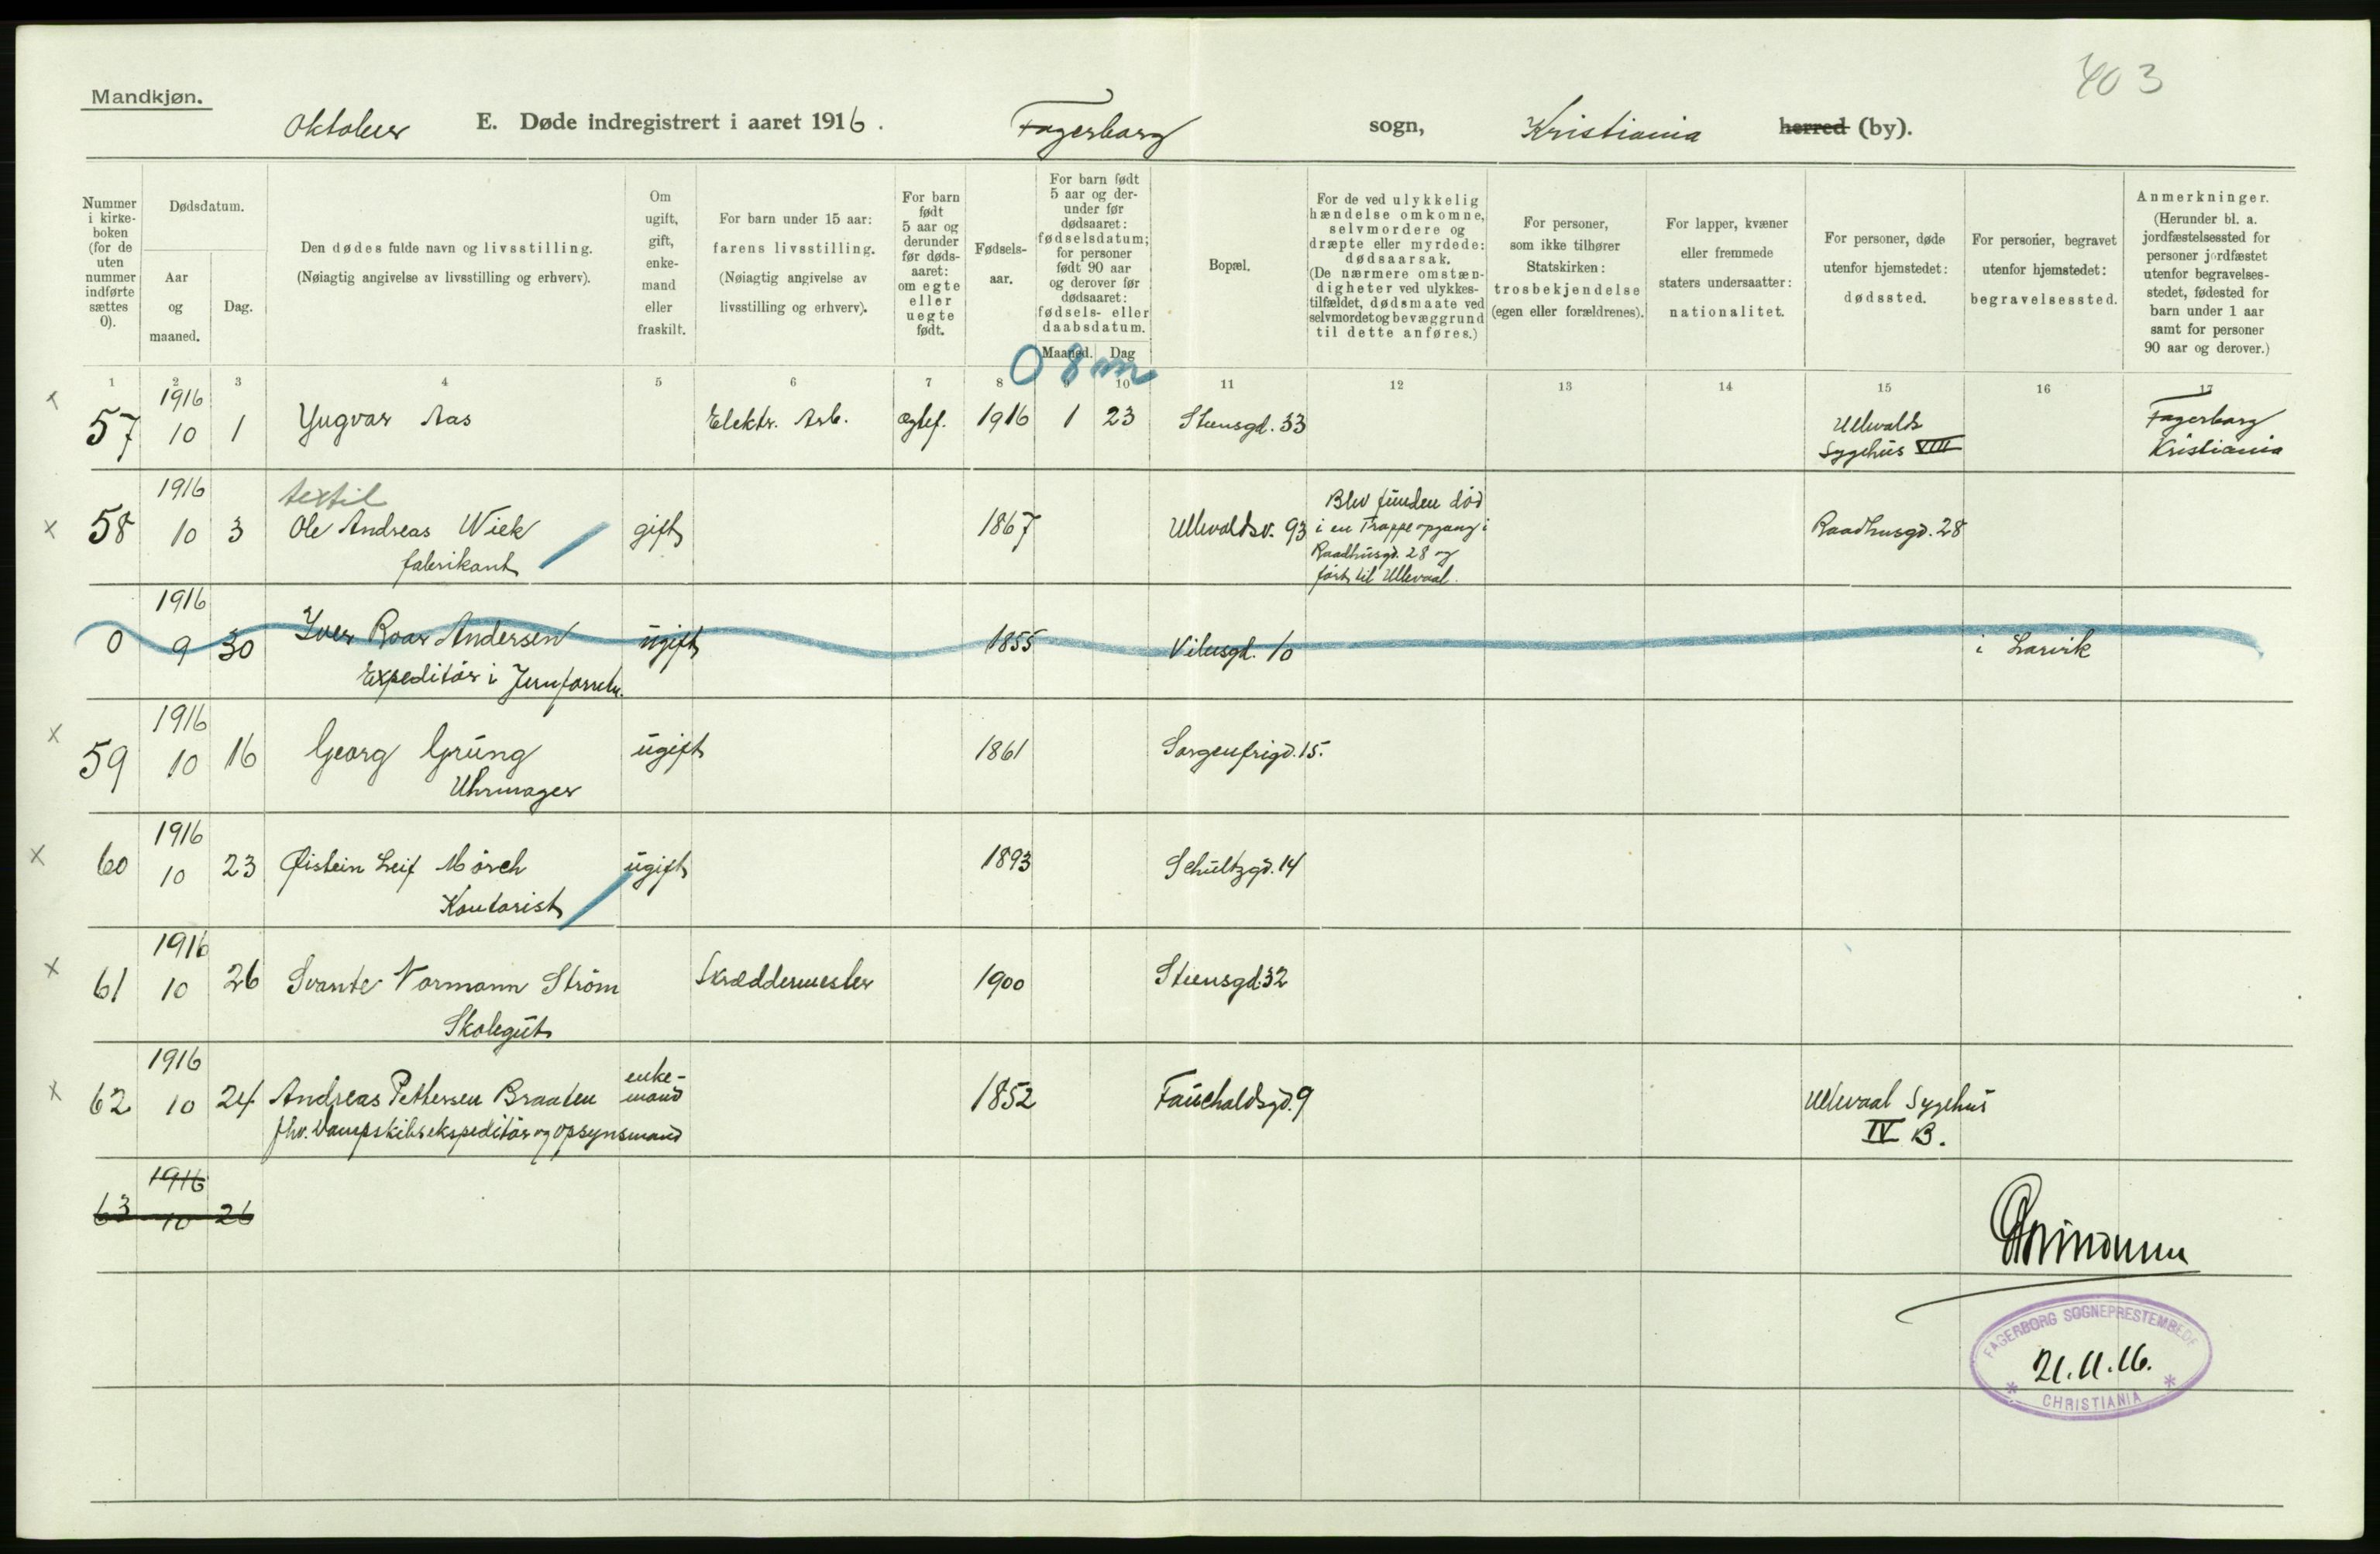 403
Mandkjøn.
Oktober E. Døde indregistrert i aaret 1916. Fagerborg sogn, Kristiania herred (by).
Nummer i kirke- boken (for de uten nummer indførte sættes 0).
Dødsdatum.
Aar og maaned.
Dag.
Den dødes fulde navn og livsstilling.
(Nøiagtig angivelse av livsstilling og erhverv).
Om ugift, gift, enke- mand eller fraskilt.
For barn under 15 aar: farens livsstilling.
(Nøiagtig angivelse av livsstilling og erhverv).
For barn født 5 aar og derunder før døds- aaret: om egte eller uegte født.
Fødsels- aar.
For barn født 5 aar og der- under før dødsaaret: fødselsdatum; for personer født 90 aar og derover før dødsaaret: fødsels- eller daabsdatum.
Maaned. Dag
Bopæl.
For de ved ulykkelig hændelse omkomne, selvmordere og dræpte eller myrdede: dødsaarsak.
(De nærmere omstæn- digheter ved ulykkes- tilfældet, dødsmaate ved selvmordet og bevæggrund til dette anføres.)
For personer, som ikke tilhører Statskirken: trosbekjendelse (egen eller forældrenes).
For lapper, kvæner eller fremmede staters undersaatter: nationalitet.
For personer, døde utenfor hjemstedet: dødssted.
For personer, begravet utenfor hjemstedet: begravelsessted.
Anmerkninger.
(Herunder bl. a. jordfæstelsessted for personer jordfæstet utenfor begravelses- stedet, fødested for barn under 1 aar samt for personer 90 aar og derover.)
0 8 m
1 2 3 4 5 6 7 8 9 10 11 12 13 14 15 16 17
x 57 1916 10 1 Yngvar Aas Elektr. Arb. Ægtef. 1916 1 23 Stensgd. 33 Ullevaals Sygehus VIII Fagerborg Kristiania
textil
x 58 1916 10 3 Ole Andreas Wiek gift 1867 Ullevoldsv. 93 Blev funden død i en Trappeopgang i Raadhusgd. 28 og ført til Ullevaal. Raadhusgd. 28
fabrikant
0 1916 9 30 Iver Roar Andersen ugift 1855 Vibesgd. 10 i Larvik
Expeditör i Jernforretn.
x 59 1916 10 16 Georg Grüng ugift 1861 Sorgenfrigd. 15.
Uhrmager
x 60 1916 10 23 Øistein Leif Mörch ugift 1893 Schultzgd. 14
Kontorist
x 61 1916 10 26 Svante Normann Ström Skræddermester 1900 Stensgd. 32
Skolegut
x 62 1916 10 24 Andreas Pettersen Braaten enke- mand 1852 Fauchaldsgd. 9 Ullevaal Sygehus IV B.
fhv. Dampskibsekspeditör og opsynsmand
63 1916 10 26
FAGERBORG SOGNEPRESTEMBEDE
21.11.16.
* CHRISTIANIA *